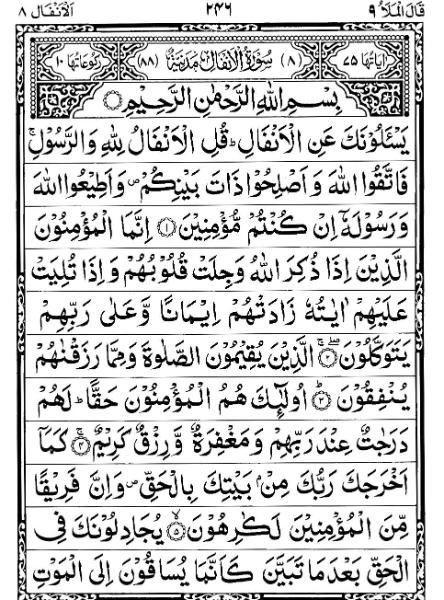 قَالَ الْمَلَاُ ۹ ۲۴۶ اَلْاَنْفَال ۸
اٰيَاتُهَا ۷۵ (۸) سُوْرَةُ الْاَنْفَالِ مَدَنِيَّةٌ (۸۸) رُكُوْعَاتُهَا ۱۰
بِسْمِ اللّٰهِ الرَّحْمٰنِ الرَّحِيْمِ ۝
يَسْـَٔلُوْنَكَ عَنِ الْاَنْفَالِ ؕ قُلِ الْاَنْفَالُ لِلّٰهِ وَالرَّسُوْلِ ۚ
فَاتَّقُوا اللّٰهَ وَاَصْلِحُوْا ذَاتَ بَيْنِكُمْ ۪ وَاَطِيْعُوا اللّٰهَ
وَرَسُوْلَهٗۤ اِنْ كُنْتُمْ مُّؤْمِنِيْنَ ۝۱ اِنَّمَا الْمُؤْمِنُوْنَ
الَّذِيْنَ اِذَا ذُكِرَ اللّٰهُ وَجِلَتْ قُلُوْبُهُمْ وَاِذَا تُلِيَتْ
عَلَيْهِمْ اٰيٰتُهٗ زَادَتْهُمْ اِيْمَانًا وَّعَلٰى رَبِّهِمْ
يَتَوَكَّلُوْنَ ۝۲ الَّذِيْنَ يُقِيْمُوْنَ الصَّلٰوةَ وَمِمَّا رَزَقْنٰهُمْ
يُنْفِقُوْنَ ۝۳ اُولٰٓئِكَ هُمُ الْمُؤْمِنُوْنَ حَقًّا ؕ لَهُمْ
دَرَجٰتٌ عِنْدَ رَبِّهِمْ وَمَغْفِرَةٌ وَّرِزْقٌ كَرِيْمٌ ۝۴ كَمَاۤ
اَخْرَجَكَ رَبُّكَ مِنْۢ بَيْتِكَ بِالْحَقِّ ۪ وَاِنَّ فَرِيْقًا
مِّنَ الْمُؤْمِنِيْنَ لَكٰرِهُوْنَ ۝۵ يُجَادِلُوْنَكَ فِى
الْحَقِّ بَعْدَ مَا تَبَيَّنَ كَاَنَّمَا يُسَاقُوْنَ اِلَى الْمَوْتِ